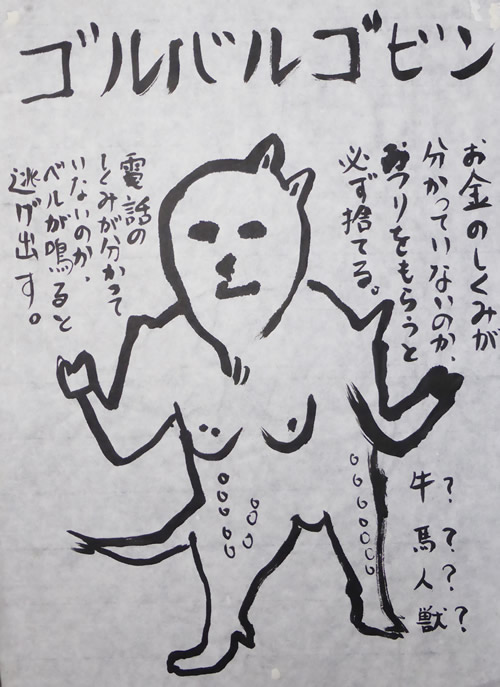 ゴルバルゴビン
お金のしくみが
分かっていないのか、
おつりをもらうと
必ず捨てる。
電話の
しくみが分かって
いないのか、
ベルが鳴ると
逃げ出す。
牛?
馬?
人?
獣?